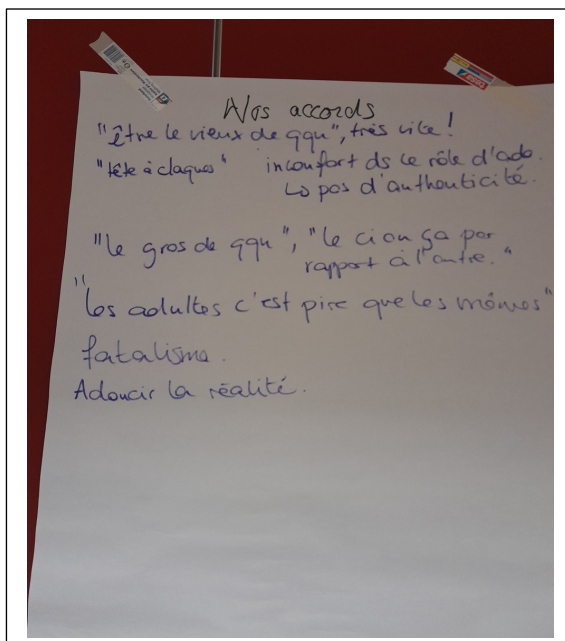 Nos accords
"être le vieux de qqn", très vite !
"tête à claques" inconfort ds le rôle d'ado.
↳ pas d'authenticité.
"le gros de qqn", "le ci ou ça par
rapport à l'autre."
"les adultes c'est pire que les mômes"
fatalisme.
Adoucir la réalité.